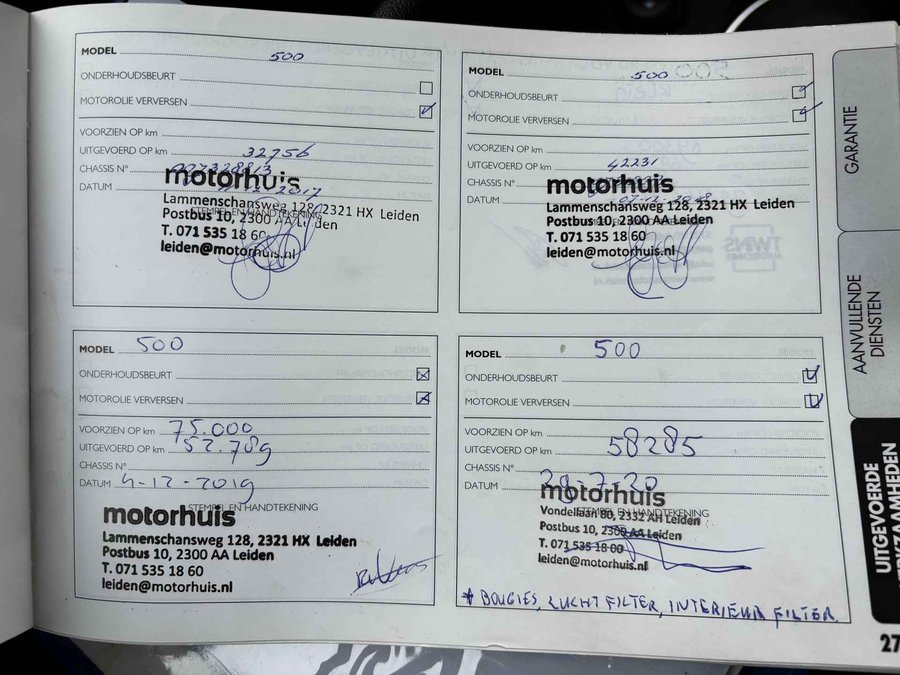 MODEL 500
ONDERHOUDSBEURT
MOTOROLIE VERVERSEN
VOORZIEN OP km
UITGEVOERD OP km 32756
CHASSIS N°
DATUM 2017
motorhuis
Lammenschansweg 128, 2321 HX Leiden
STEMPEL EN HANDTEKENING
Postbus 10, 2300 AA Leiden
T. 071 535 18 60
leiden@motorhuis.nl
MODEL 500
ONDERHOUDSBEURT
MOTOROLIE VERVERSEN
VOORZIEN OP km
UITGEVOERD OP km 42231
CHASSIS N°
DATUM
motorhuis
Lammenschansweg 128, 2321 HX Leiden
Postbus 10, 2300 AA Leiden
T. 071 535 18 60
leiden@motorhuis.nl
MODEL 500
ONDERHOUDSBEURT
MOTOROLIE VERVERSEN
VOORZIEN OP km 75.000
UITGEVOERD OP km 52.789
CHASSIS N°
DATUM 4-12-2019
STEMPEL EN HANDTEKENING
motorhuis
Lammenschansweg 128, 2321 HX Leiden
Postbus 10, 2300 AA Leiden
T. 071 535 18 60
leiden@motorhuis.nl
MODEL 500
ONDERHOUDSBEURT
MOTOROLIE VERVERSEN
VOORZIEN OP km
UITGEVOERD OP km 58285
CHASSIS N°
DATUM 28-7-20
motorhuis
STEMPEL EN HANDTEKENING
Vondellaan 80, 2332 AH Leiden
Postbus 10, 2300 AA Leiden
T. 071 535 18 00
leiden@motorhuis.nl
* BOUGIES, LUCHTFILTER, INTERIEUR FILTER
GARANTIE
AANVULLENDE
DIENSTEN
UITGEVOERDE
27